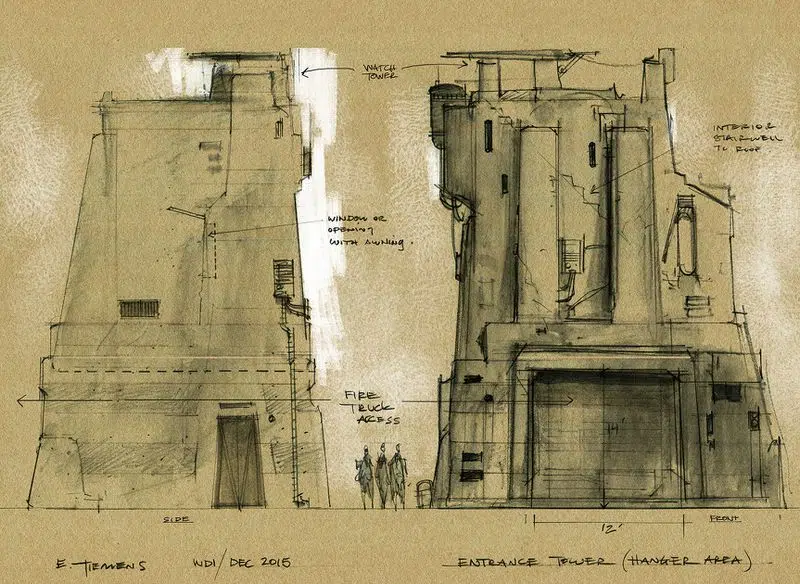 WATCH
TOWER
INTERIOR
STAIRWELL
TO ROOF
WINDOW OR
OPENING
WITH AWNING.
FIRE
TRUCK
ACESS
14'
SIDE
12'
FRONT
E. TIEMENS WDI/DEC 2015
ENTRANCE TOWER (HANGER AREA)